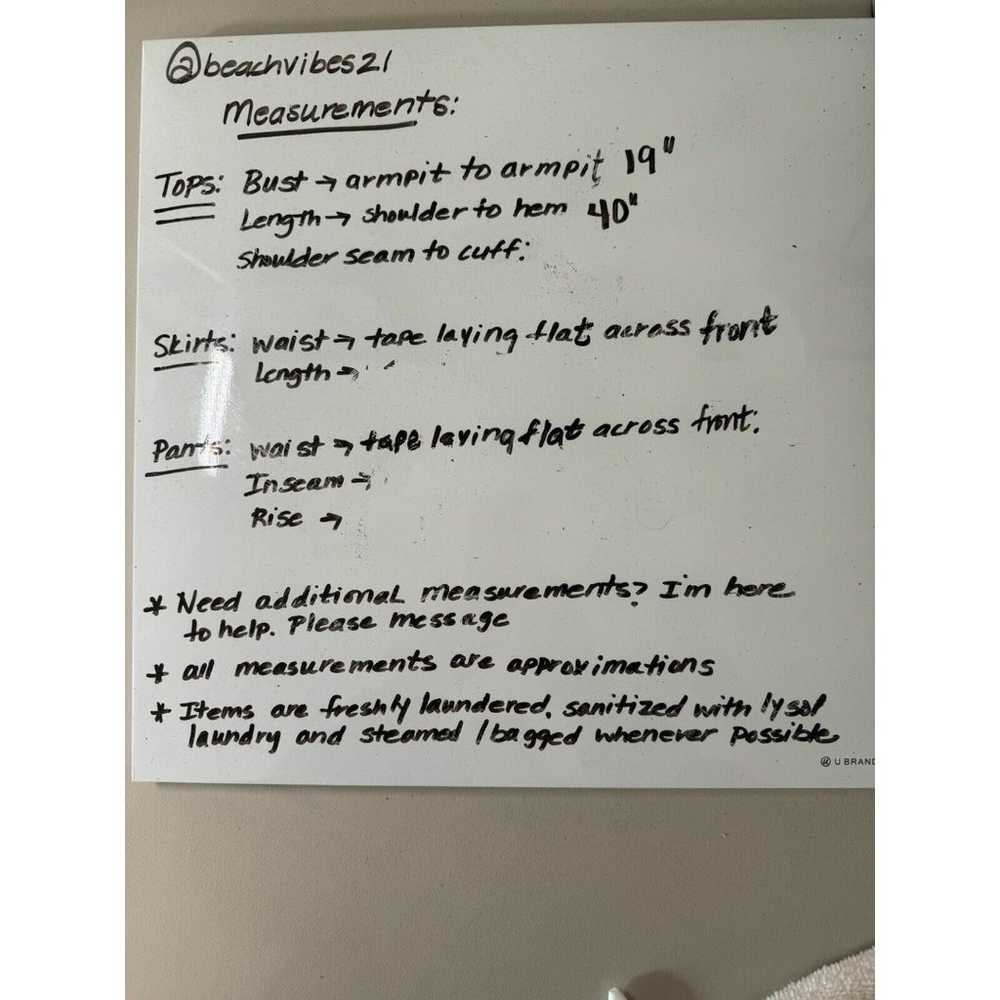 @beachvibes21
Measurements:
Tops: Bust → armpit to armpit 19"
Length → shoulder to hem 40"
Shoulder seam to cuff:
Skirts: waist → tape laying flat across front
Length →
Pants: waist → tape laying flat across front:
Inseam →
Rise →
* Need additional measurements? I'm here
to help. Please message
* all measurements are approximations
* Items are freshly laundered, sanitized with lysol
laundry and steamed / bagged whenever possible
U BRAND